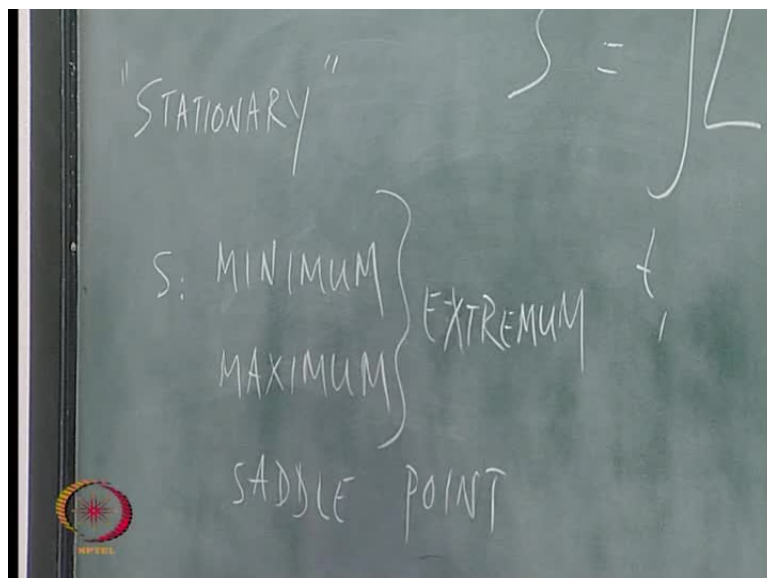 "STATIONARY"
S = ∫ L
t₁
S: MINIMUM
MAXIMUM
} EXTREMUM
SADDLE POINT
NPTEL